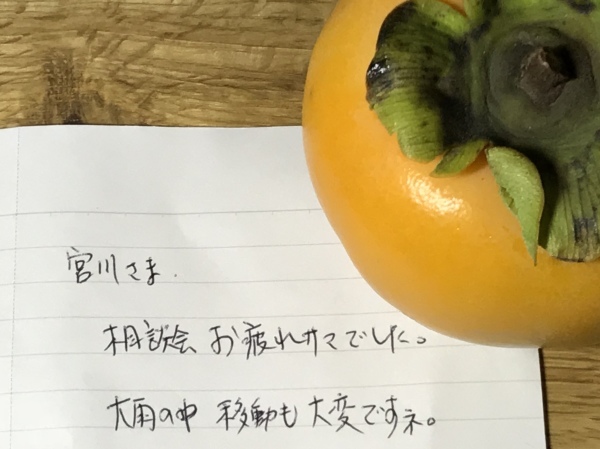 宮川さま.
相談会 お疲れサマでした。
大雨の中 移動も大変ですネ。